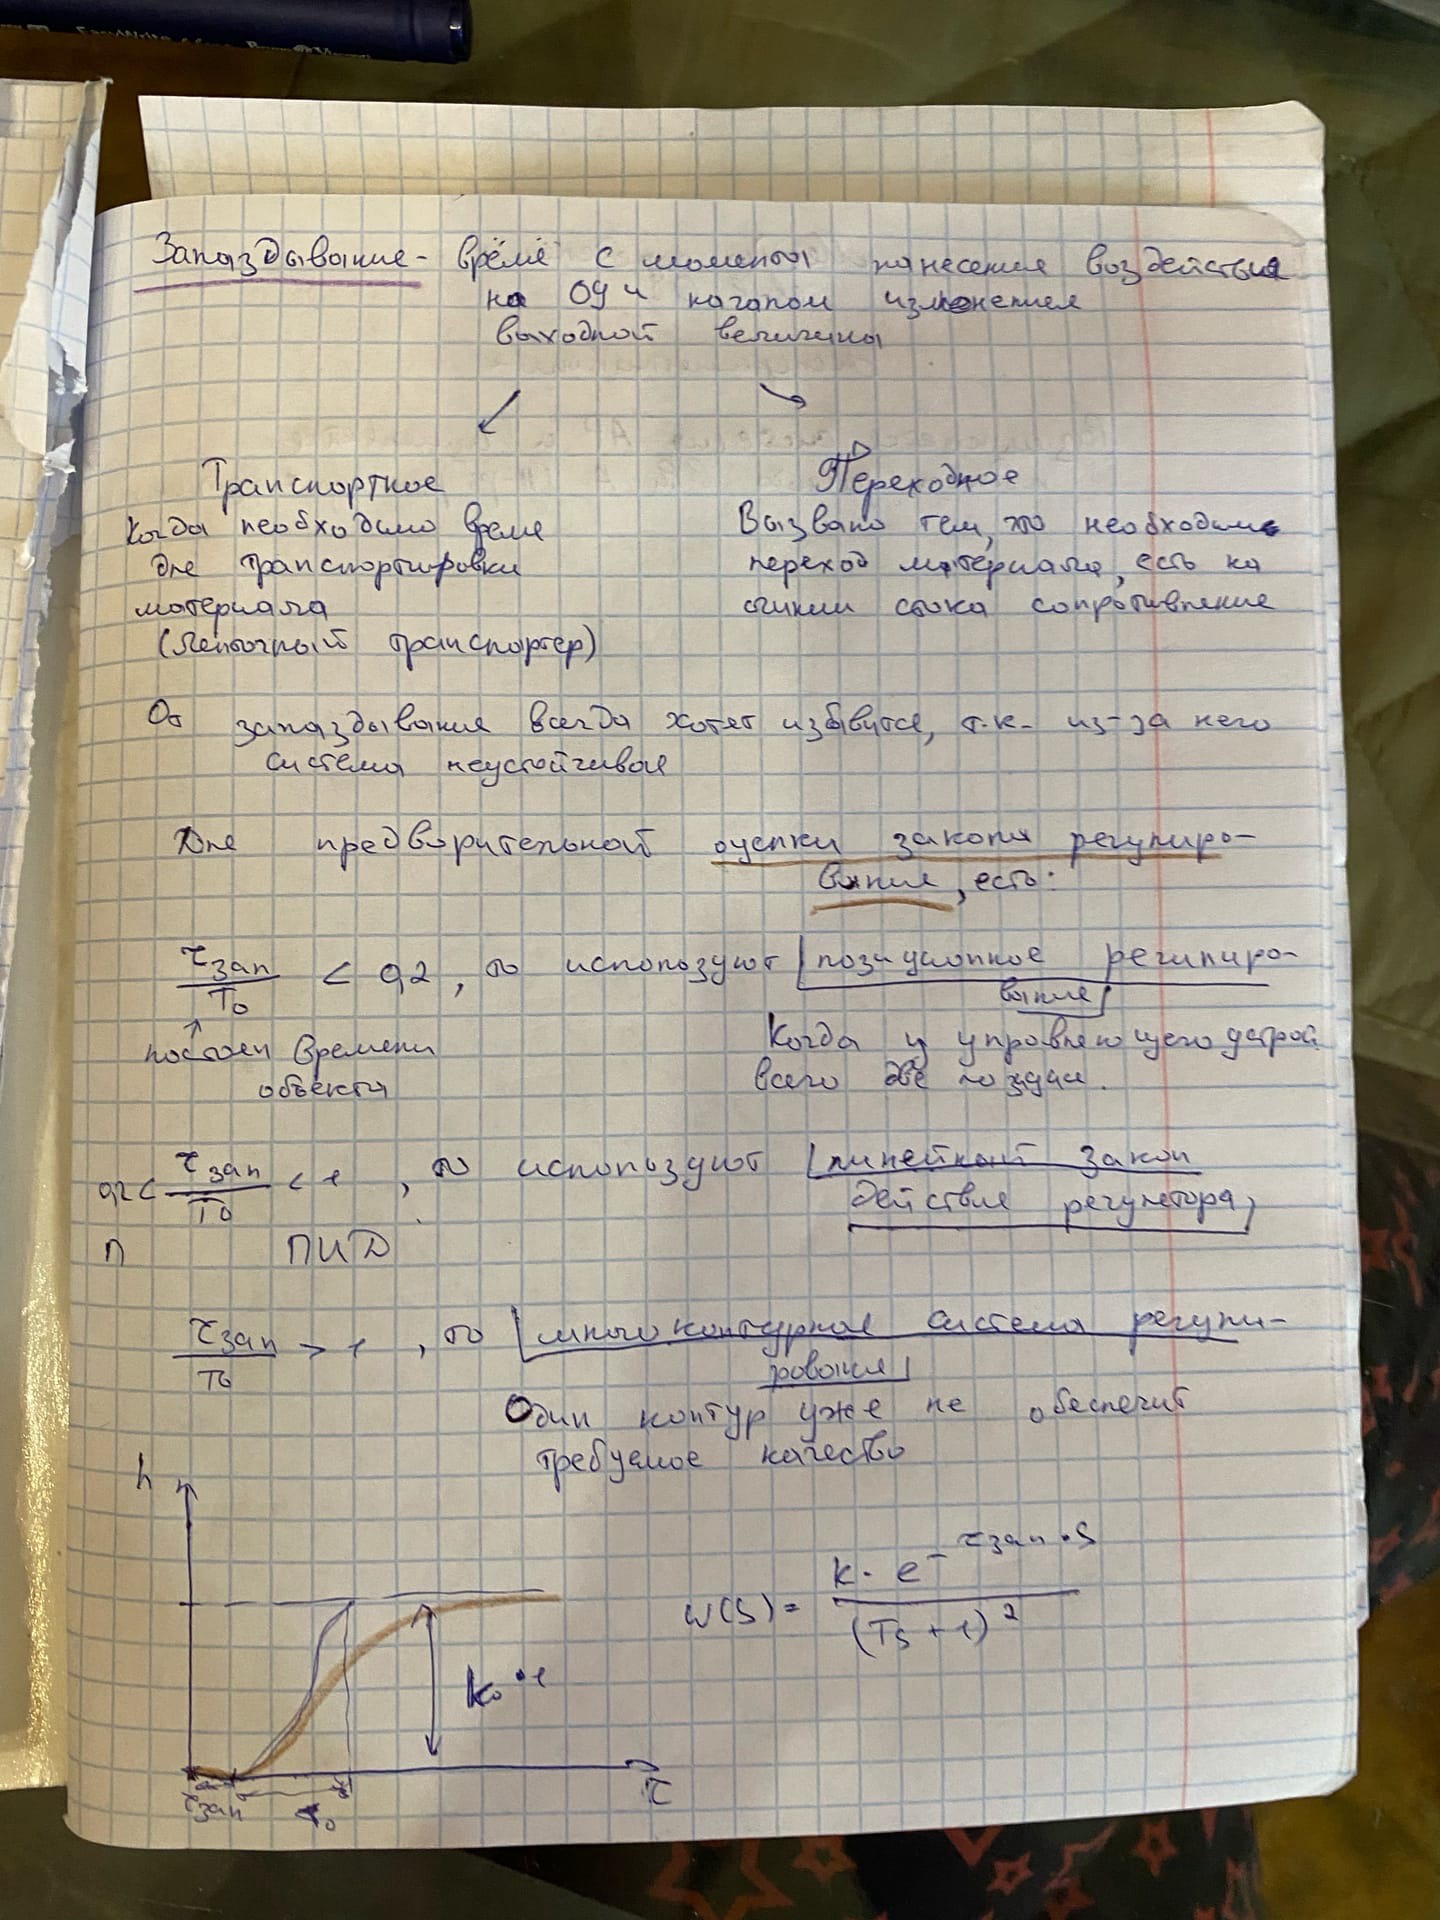 Запаздывание - время с момента нанесения воздействия
на ОУ и началом изменения
выходной величины
Транспортное
Переходное
Когда необходимо время
для транспортировки
материала
(Ленточный транспортер)
Вызвано тем, что необходим
переход материала, есть на
стока сопротивление
От запаздывания всегда хотят избавится, т.к. из-за него
система неустойчивая
Для предворительной оценки закона регулиро-
вания, есть:
τзап/T₀ < 0,2, то используют позиционное регилиро-
вание
постоян времени
объекта
Когда у управляющего устрой
всего две позиции.
0,2 < τзап/T₀ < 1, то используют линейный закон
действия регулятора
П ПИД
τзап/T₀ > 1, то многоконтурная система регули-
рования
Один контур уже не обеспечит
требуемое качество
h
W(S) = k · e^(-τзап · S) / (Ts + 1)²
k₀ · 1
τ
τзап
T₀